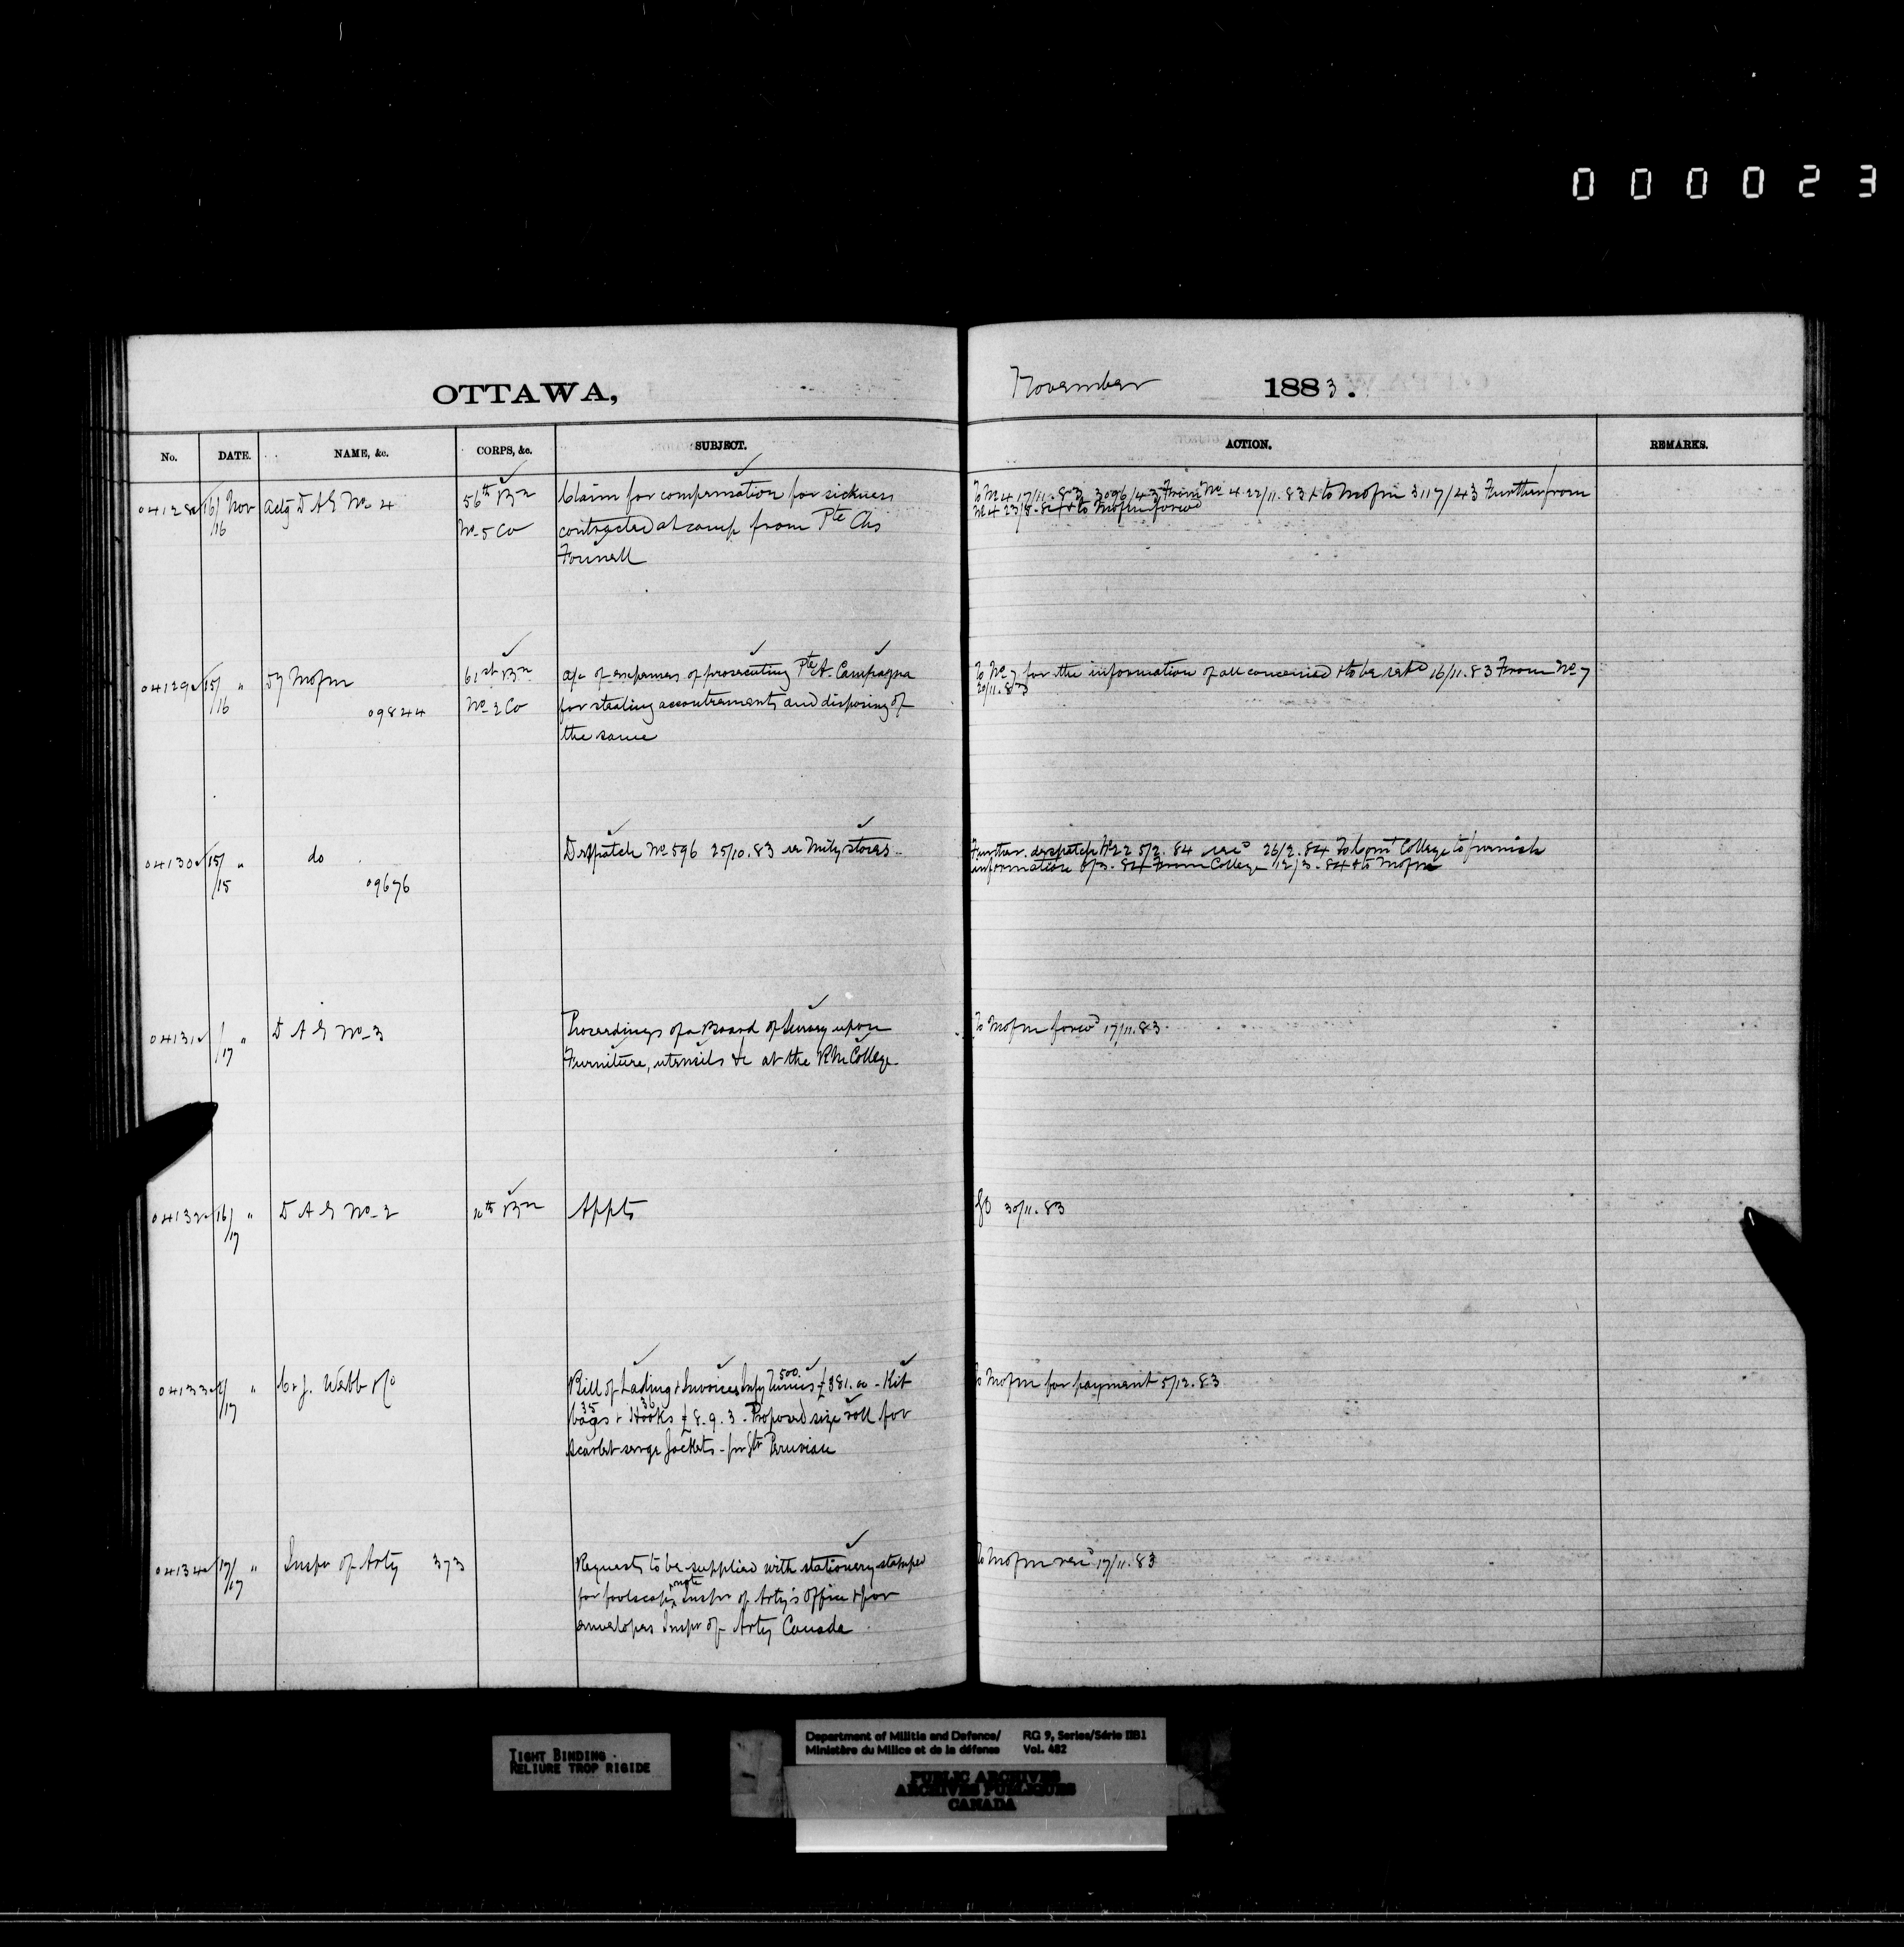 000023
OTTAWA,
November 1883.
No. DATE. NAME, &c. CORPS, &c. SUBJECT. ACTION. REMARKS.
04128 16/ Nov Actg D A G No 4 56th Bn Claim for compensation for sickness To No 4 17/11.83 3096/43 From No 4 22/11.83 & to Mofm 3117/43 Further from
/16 No 5 Co contracted at camp from Pte Chs No 4 23/8.84 & to Mofm forwd
04129 15/ " Dy Mofm 61st Bn a/c of expenses of prosecuting Pte A. Campagna To No 7 for the information of all concerned & to be retd 16/11.83 From No 7
/16 09844 No 2 Co for stealing accoutrements and disposing of 20/11.83
the same
04130 15/ " do Despatch No 596 25/10.83 re Mily stores Further despatch No 22 5/2.84 recd 26/2.84 To Comt College to furnish
/15 09676 information 6/3.84 From College 12/3.84 & to Mofm
04131 /17 " D A G No 3 Proceedings of a Board of Survey upon To Mofm forwd 17/11.83
Furniture, utensils &c at the RM College
04132 16/ " D A G No 2 Bn Appts GO 30/11.83
/17
04133 " J. Webb & Co Bill of Lading & Invoices Infy Tunics 500 £381.00 - Kit To Mofm for payment 5/12.83
/17 bags 35 & Hooks 36 £8.9.3 - Proposed size roll for
Scarlet serge Jackets - per Str Peruvian
04134 17/ " Inspr of Arty 373 Requests to be supplied with stationery stamped To Mofm recd 17/11.83
/17 for foolscap & note Inspr of Arty's Office & for
envelopes Inspr of Arty Canada
TIGHT BINDING
RELIURE TROP RIGIDE
Department of Militia and Defence/ RG 9, Series/Série IIB1
Ministère du Milice et de la défense Vol. 482
PUBLIC ARCHIVES
ARCHIVES PUBLIQUES
CANADA